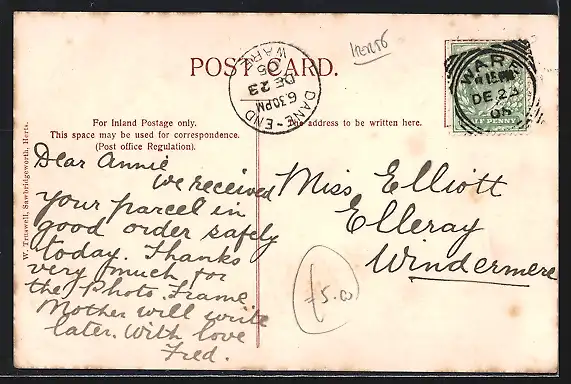 Herts
POST CARD.
DANE-END
6.30PM
DE 23
05
WARE
WARE
11 15PM
DE 23
05
LF PENNY
For Inland Postage only.
This space may be used for correspondence.
(Post office Regulation).
The address to be written here.
W. Truswell, Sawbridgeworth, Herts.
Dear Annie
We received
your parcel in
good order safely
today. Thanks
very much for
the Photo. Frame
Mother will write
later. With love
Fred.
Miss Elliott
Elleray
Windermere
£5.00